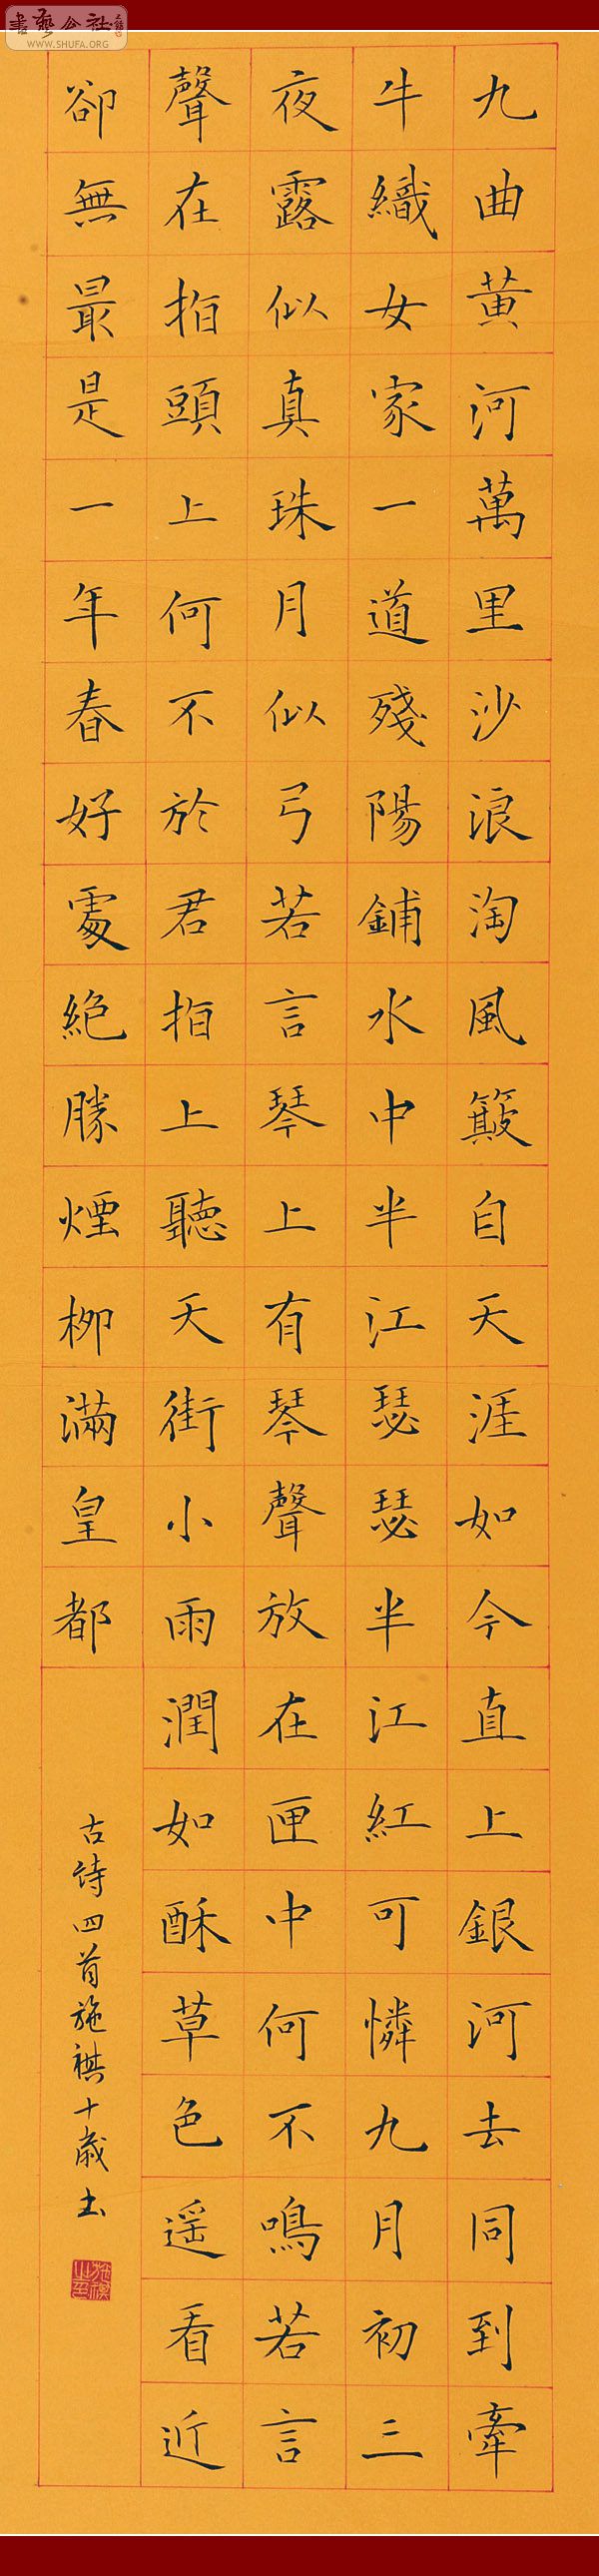 書藝公社
WWW.SHUFA.ORG
九曲黃河萬里沙浪淘風簸自天涯如今直上銀河去同到牽
牛織女家一道殘陽鋪水中半江瑟瑟半江紅可憐九月初三
夜露似真珠月似弓若言琴上有琴聲放在匣中何不鳴若言
聲在指頭上何不於君指上聽天街小雨潤如酥草色遥看近
卻無最是一年春好處絕勝煙柳滿皇都
古詩四首施祺十歲书